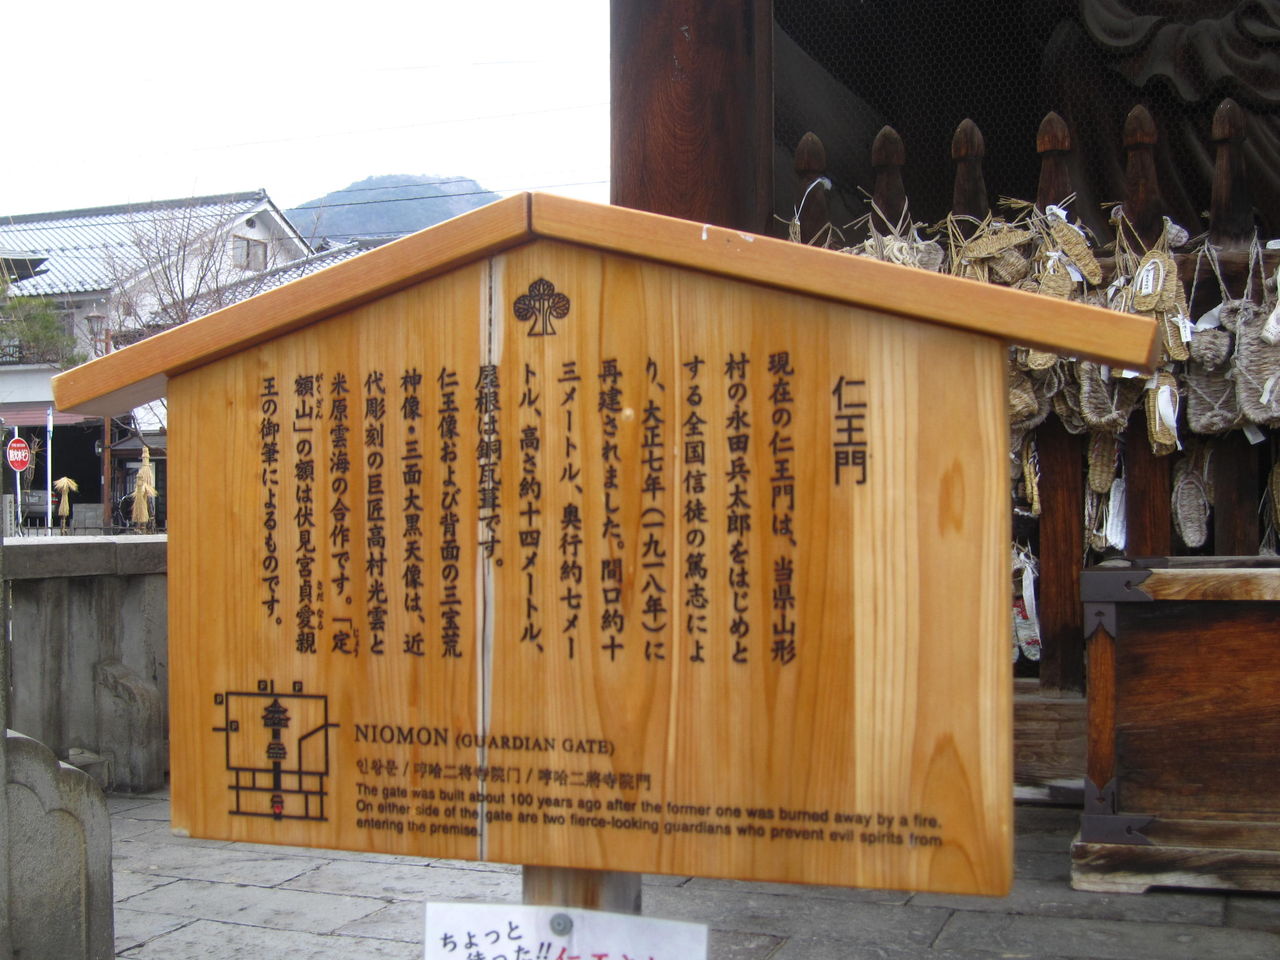 仁王門
現在の仁王門は、当県山形
村の永田兵太郎をはじめと
する全国信徒の篤志によ
り、大正七年(一九一八年)に
再建されました。間口約十
三メートル、奥行約七メー
トル、高さ約十四メートル、
屋根は銅瓦葺です。
仁王像および背面の三宝荒
神像・三面大黒天像は、近
代彫刻の巨匠高村光雲と
米原雲海の合作です。「定
額山」の額は伏見宮貞愛親
王の御筆によるものです。
NIOMON (GUARDIAN GATE)
인왕문 / 哼哈二将寺院门 / 哼哈二將寺院門
The gate was built about 100 years ago after the former one was burned away by a fire.
On either side of the gate are two fierce-looking guardians who prevent evil spirits from
entering the premise.
P P P P P
ちょっと
待った!!